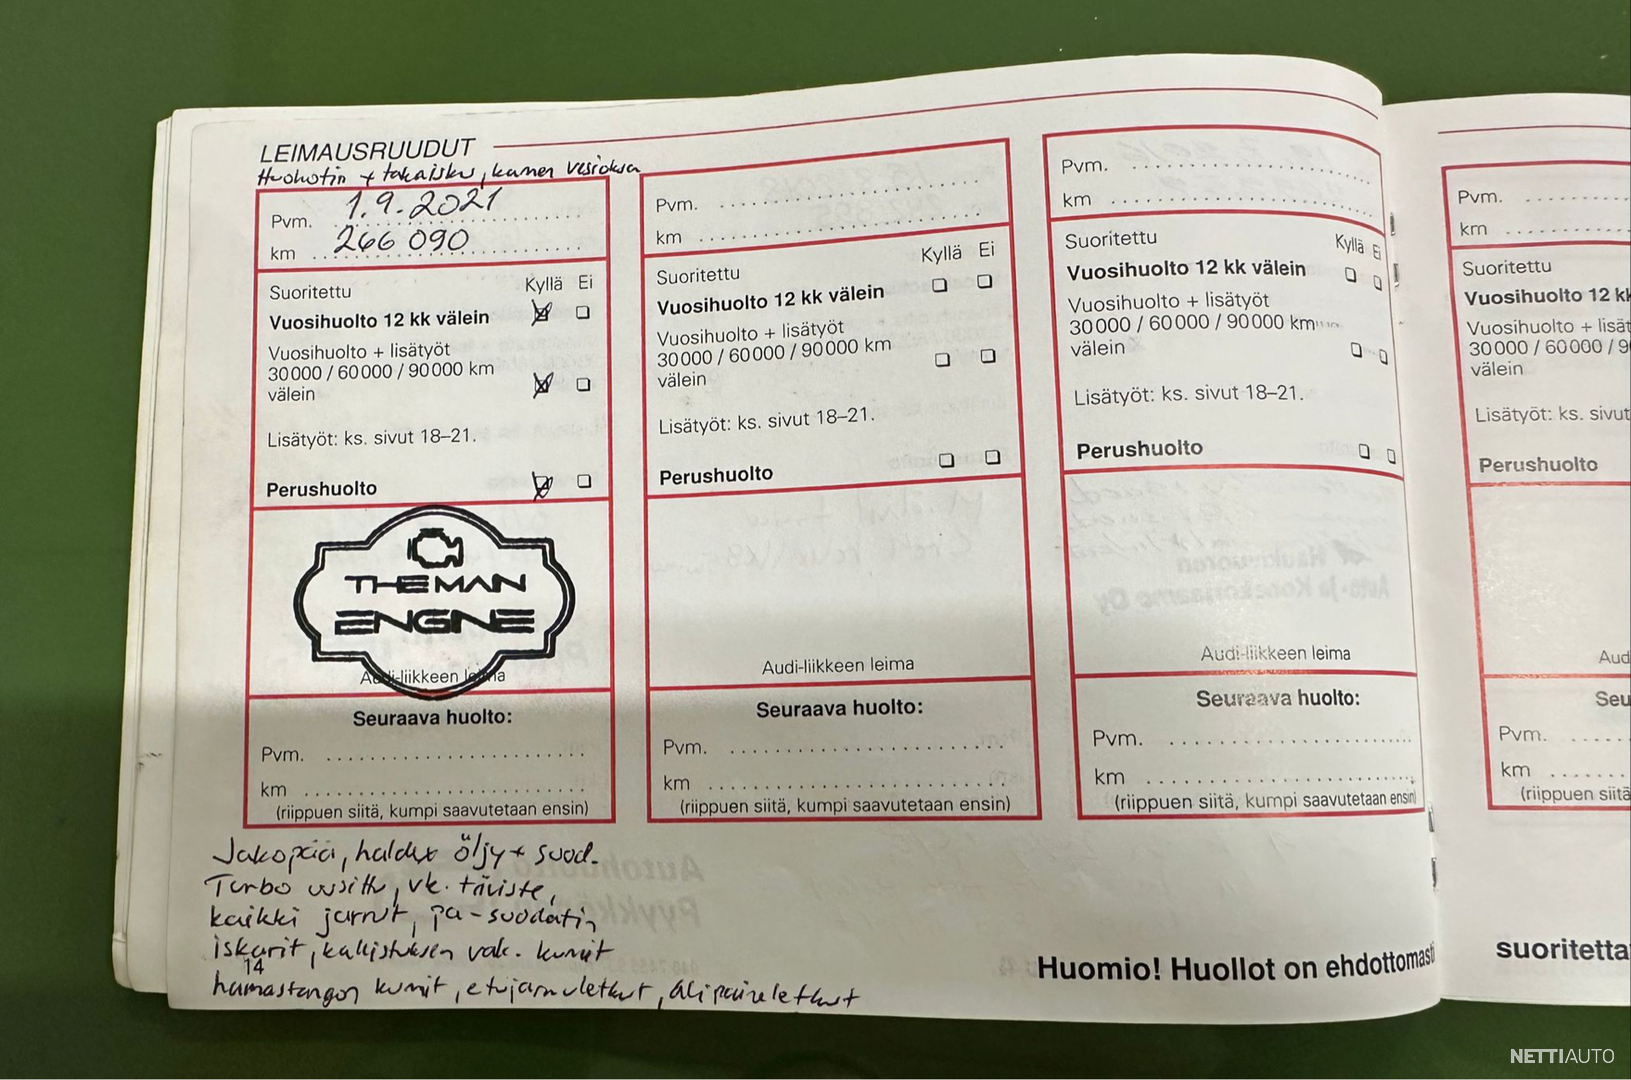 LEIMAUSRUUDUT
takaisku,
Pvm. 1.9.2021
km 266 090
Suoritettu Kyllä Ei
Vuosihuolto 12 kk välein
Vuosihuolto + lisätyöt
30 000 / 60 000 / 90 000 km
välein
Lisätyöt: ks. sivut 18–21.
Perushuolto
THE MAN
ENGINE
Audi-liikkeen leima
Seuraava huolto:
Pvm.
km
(riippuen siitä, kumpi saavutetaan ensin)
Pvm.
km
Suoritettu Kyllä Ei
Vuosihuolto 12 kk välein
Vuosihuolto + lisätyöt
30 000 / 60 000 / 90 000 km
välein
Lisätyöt: ks. sivut 18–21.
Perushuolto
Audi-liikkeen leima
Seuraava huolto:
Pvm.
km
(riippuen siitä, kumpi saavutetaan ensin)
Pvm.
km
Suoritettu Kyllä Ei
Vuosihuolto 12 kk välein
Vuosihuolto + lisätyöt
30 000 / 60 000 / 90 000 km
välein
Lisätyöt: ks. sivut 18–21.
Perushuolto
Audi-liikkeen leima
Seuraava huolto:
Pvm.
km
(riippuen siitä, kumpi saavutetaan ensin)
Jakopää, haldex öljy + suod.
Turbo uusittu, vk. tiiviste,
kaikki jarrut, pa-suodatin
iskarit, kallistuksen vak. kumit
14
kumit, etujarruletkut, alipaineletkut
Huomio! Huollot on ehdottomasti
Pvm.
km
Suoritettu
Vuosihuolto 12 kk
Vuosihuolto + lisät
30 000 / 60 000 / 9
välein
Lisätyöt: ks. sivut
Perushuolto
Aud
Seu
Pvm.
km
(riippuen siitä
suoritetta
NETTIAUTO